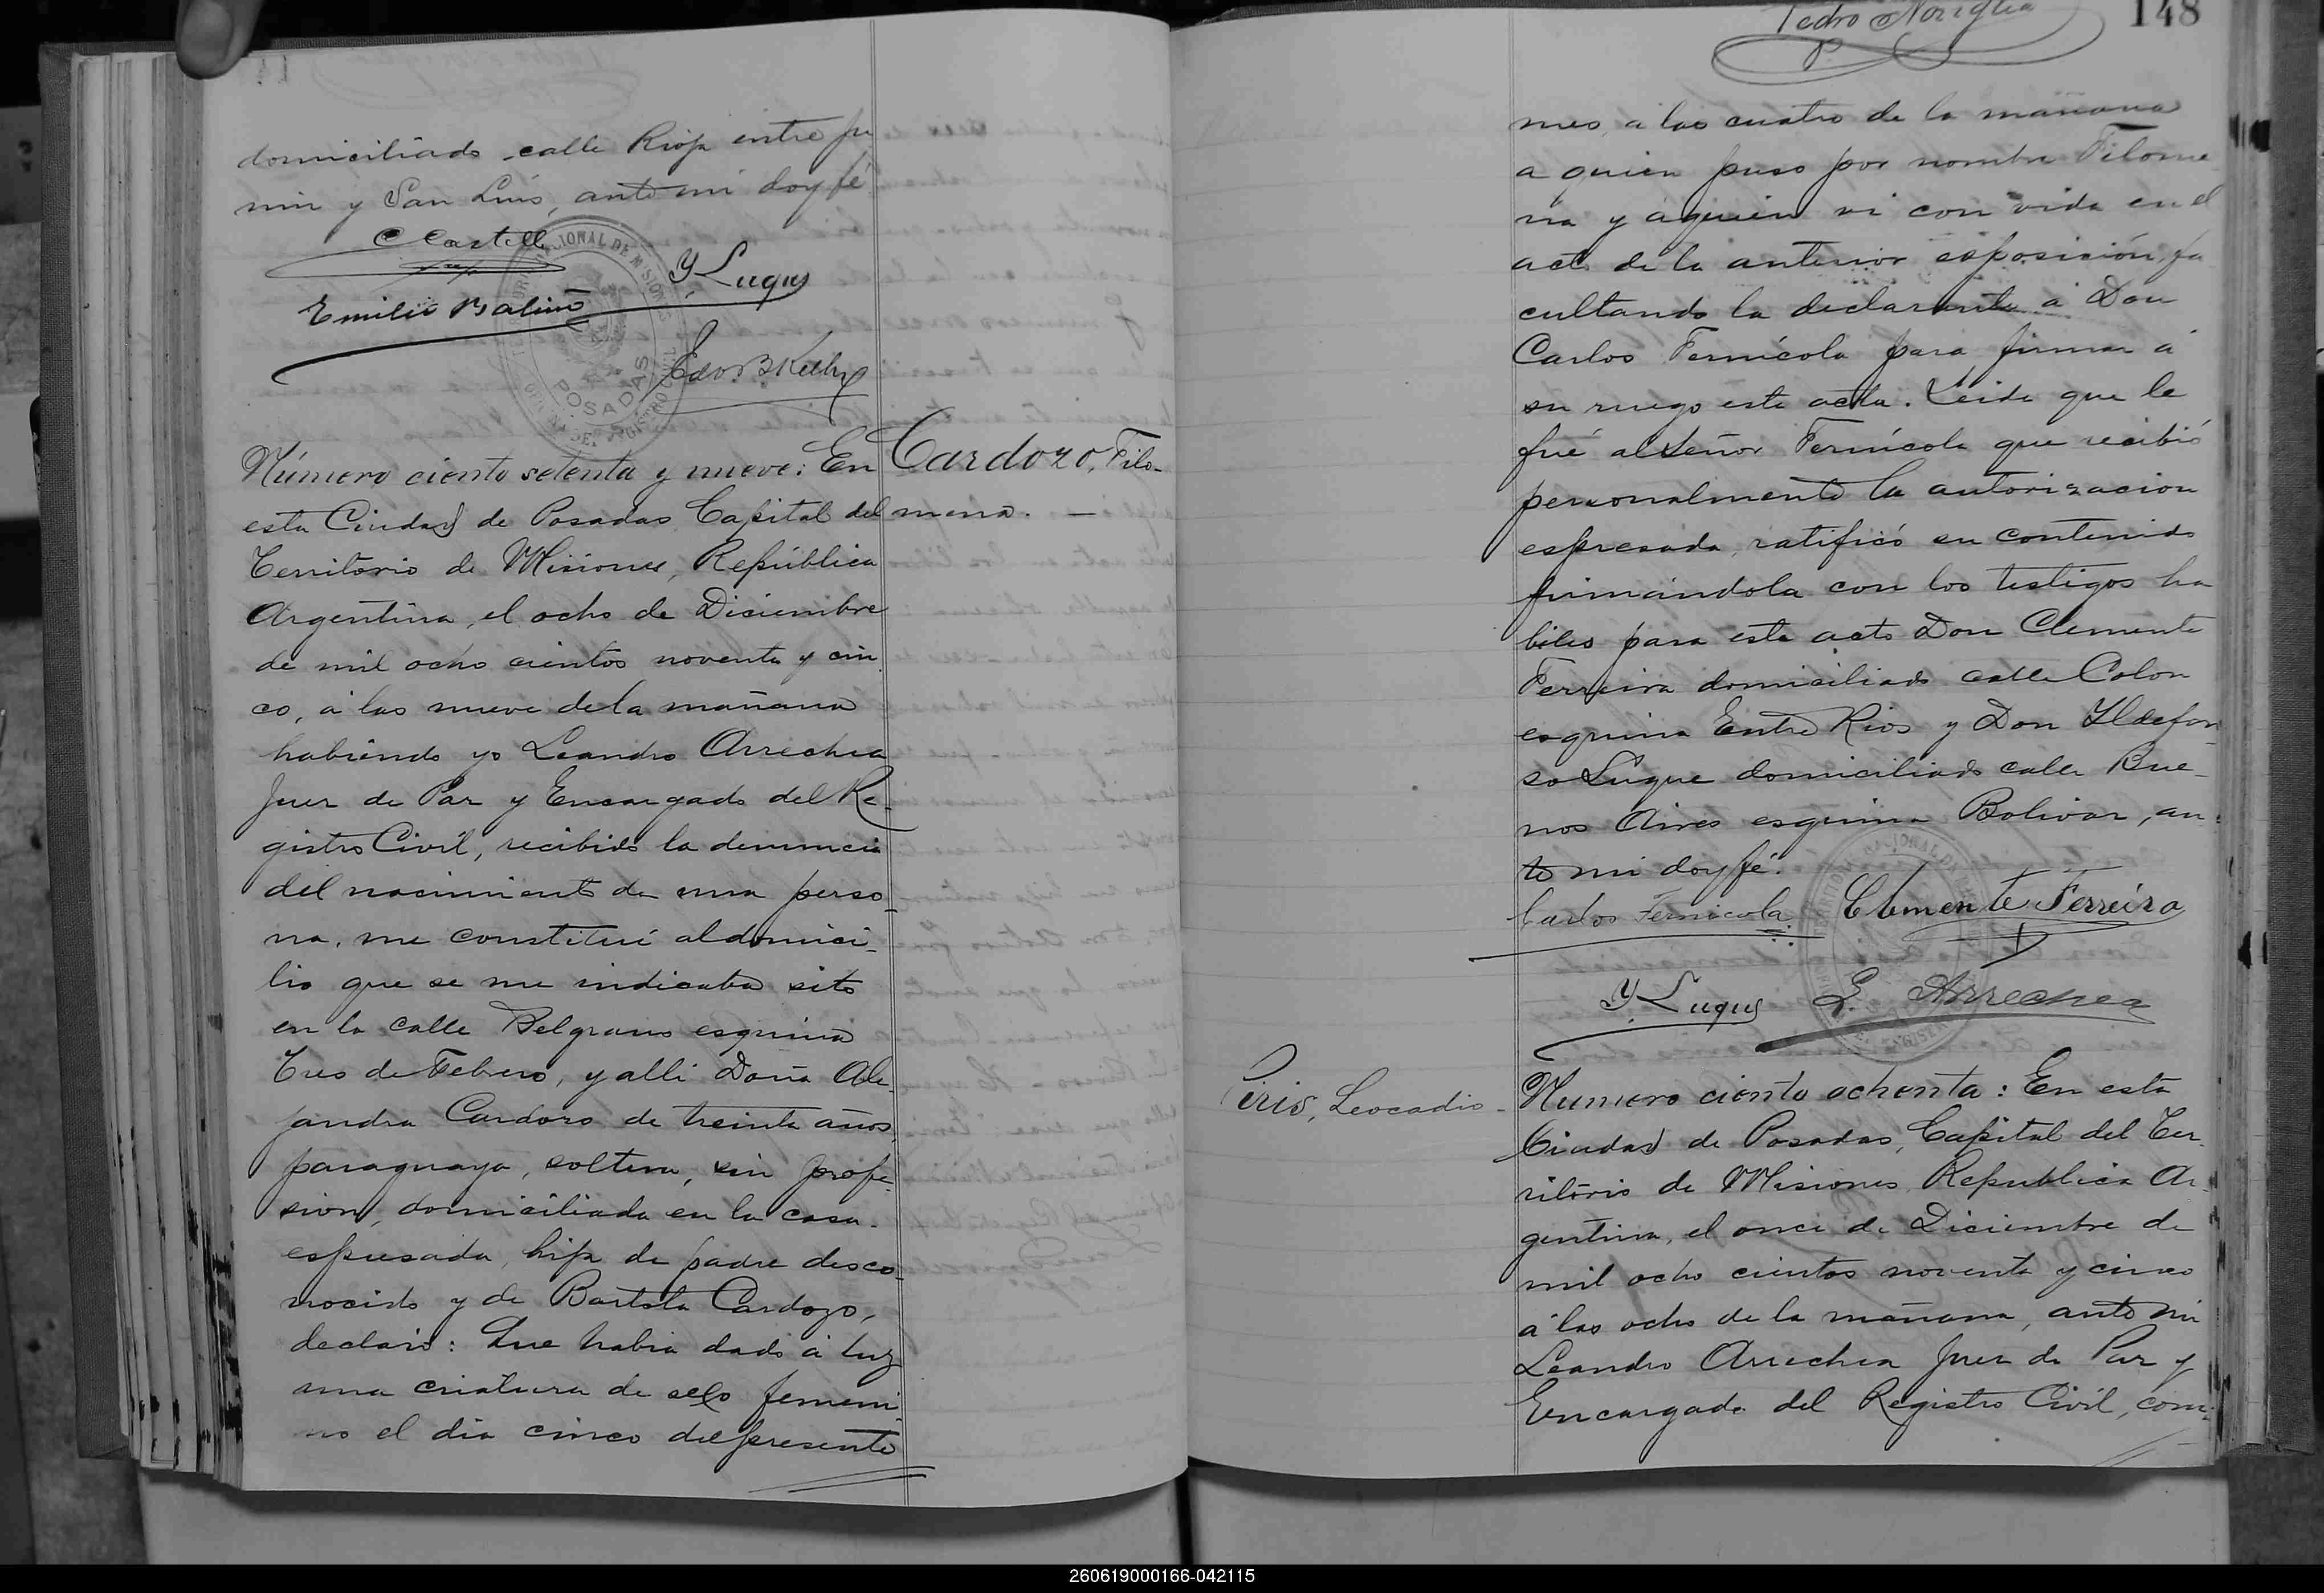 domiciliado calle Rioja entre Ju
nin y San Luis, ante mi doy fé
C Castell
Y Luque
Emilio Baliño
TERRITORIO NACIONAL DE MISIONES
POSADAS
OFICINA DEL REGISTRO CIVIL
Número ciento setenta y nueve: En
esta Ciudad de Posadas, Capital del
Territorio de Misiones, República
Argentina, el ocho de Diciembre
de mil ocho cientos noventa y cin
co, á las nueve de la mañana
habiendo yo Leandro Arrechea
Juez de Paz y Encargado del Re-
gistro Civil, recibido la denuncia
del nacimiento de una perso-
na, me constituí al domici-
lio que se me indicaba sito
en la calle Belgrano esquina
Tres de Febrero, y alli Doña Ale-
jandra Cardozo de treinta años,
paraguaya, soltera, sin profe-
sion, domiciliada en la casa
espresada, hija de padre desco-
nocido y de Bartola Cardozo,
declaró: Que habia dado á luz
una criatura de sexo femeni-
no el dia cinco del presente
Cardozo, Filo-
mena. —
Pedro Noriglia
148
mes, a las cuatro de la mañana
a quien puso por nombre Filome
na y á quien vi con vida en el
acto de la anterior esposición, fa
cultando la declarante á Don
Carlos Fernícola para firmar á
su ruego este acta. Leida que le
fué al Señor Fernícola que recibió
personalmente la autorizacion
espresada, ratificó su contenido
firmándola con los testigos ha
biles para este acto Don Clemente
Ferreira domiciliado calle Colon
esquina Entre Rios y Don Yldefon-
so Luque domiciliado calle Bue-
nos Aires esquina Bolivar, an-
te mi doy fé.
Carlos Fernicola
Clemente Ferreira
Y Luque
L. Arrechea
Piris, Leocadio -
Numero ciento ochenta: En esta
Ciudad de Posadas, Capital del Ter-
ritorio de Misiones, Republica Ar-
gentina, el once de Diciembre de
mil ocho cientos noventa y cinco
á las ocho de la mañana, ante mi
Leandro Arrechea Juez de Paz y
Encargado del Registro Civil, com-
260619000166-042115